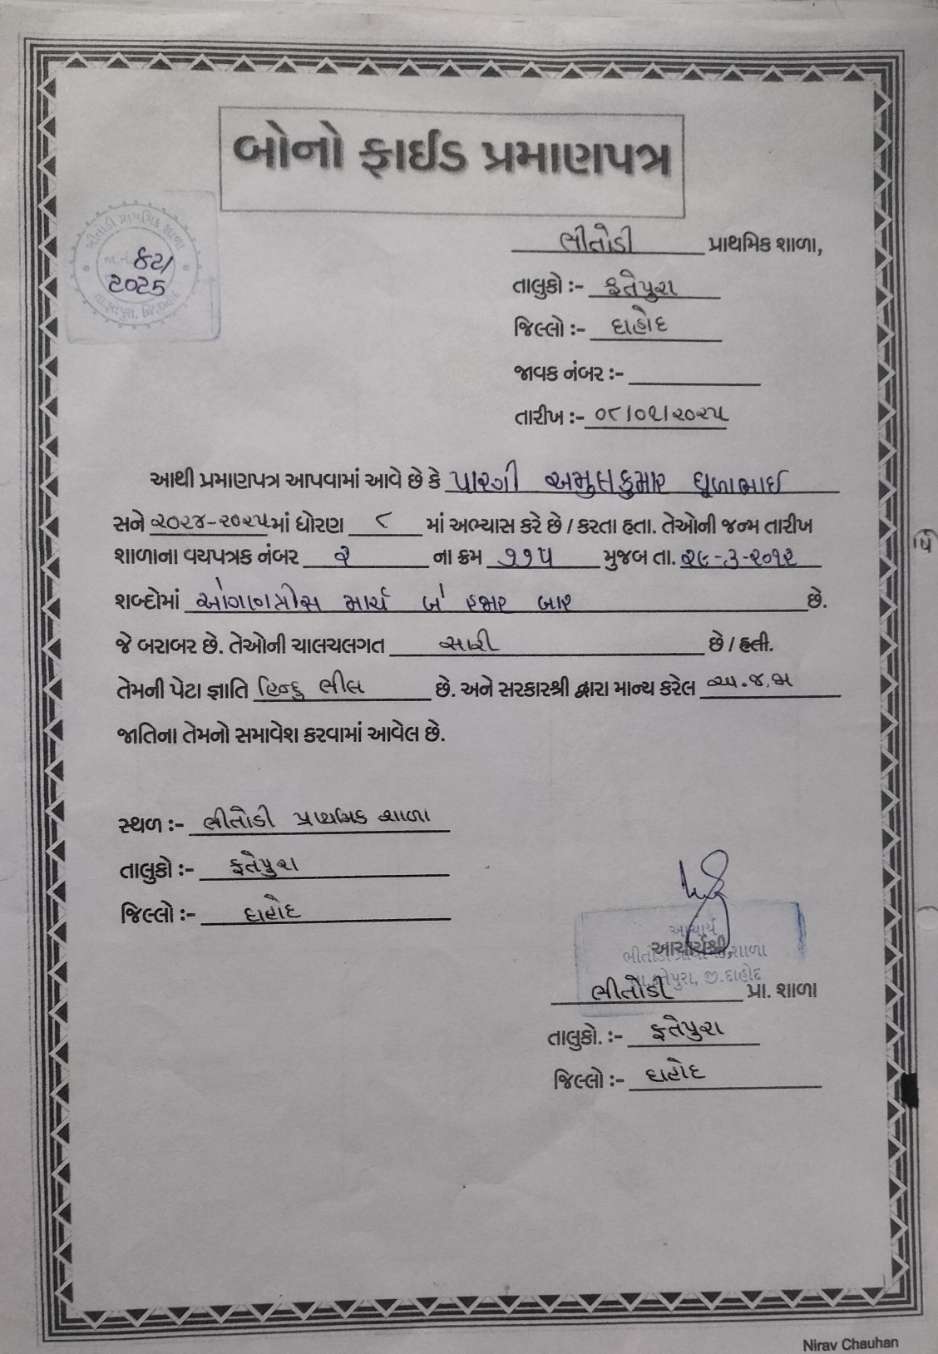 બોનો ફાઈડ પ્રમાણપત્ર
ભીતોડી પ્રાથમિક શાળા,
તાલુકો :- ફતેપુરા
જિલ્લો :- દાહોદ
જાવક નંબર :-
તારીખ :- ૦૮/૦૧/૨૦૨૫
ભીતોડી પ્રાથમિક શાળા
૬૨/
2025
આથી પ્રમાણપત્ર આપવામાં આવે છે કે પારગી અમુલકુમાર ધૂળાભાઈ
સને ૨૦૨૪-૨૦૨૫માં ધોરણ ૮ માં અભ્યાસ કરે છે / કરતા હતા. તેઓની જન્મ તારીખ
શાળાના વયપત્રક નંબર ૨ ના ક્રમ ૧૧૫ મુજબ તા. ૨૯-૩-૨૦૧૨
શબ્દોમાં ઓગણત્રીસ માર્ચ બે હજાર બાર છે.
જે બરાબર છે. તેઓની ચાલચલગત સારી છે / હતી.
તેમની પેટા જ્ઞાતિ હિન્દુ ભીલ છે. અને સરકારશ્રી દ્વારા માન્ય કરેલ અ.જ.જા
જાતિના તેમનો સમાવેશ કરવામાં આવેલ છે.
સ્થળ :- ભીતોડી પ્રાથમિક શાળા
તાલુકો :- ફતેપુરા
જિલ્લો :- દાહોદ
આચાર્ય
આચાર્યશ્રી,
ભીતોડી પ્રા. શાળા
તાલુકો. :- ફતેપુરા
જિલ્લો :- દાહોદ
Nirav Chauhan